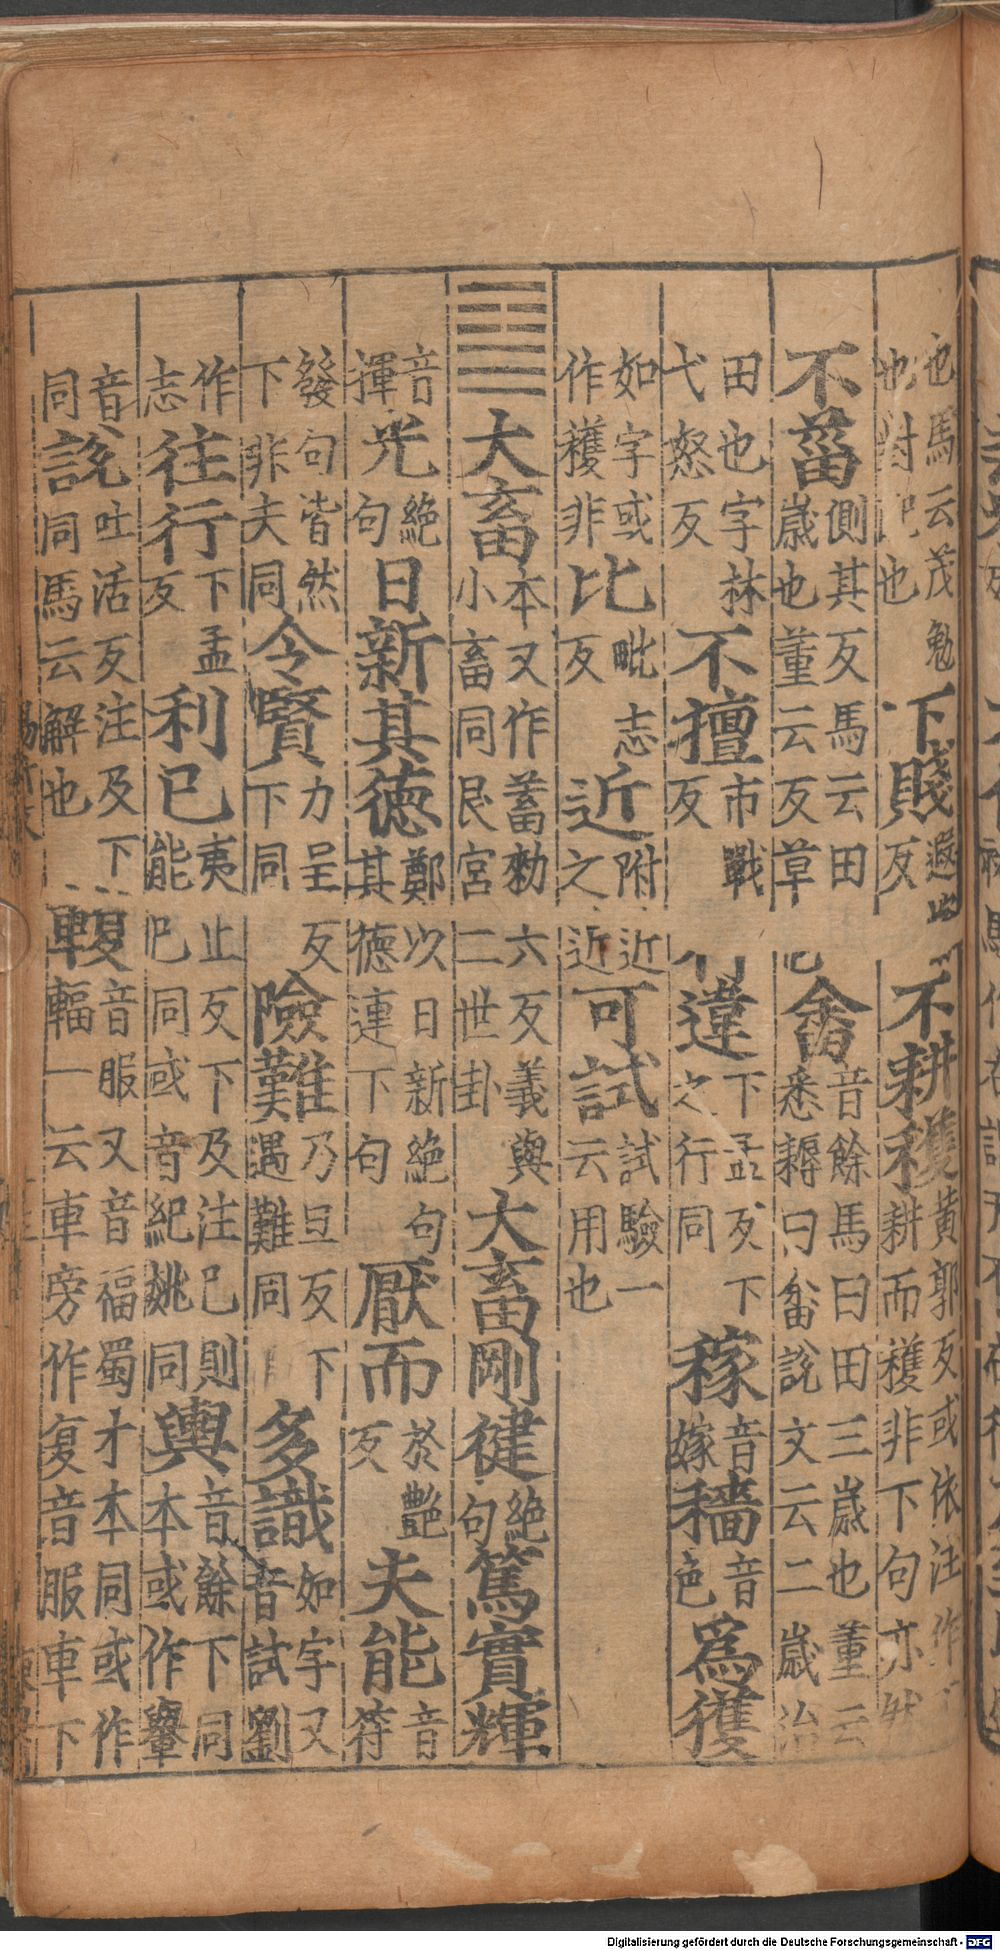 也馬云茂勉
也對配也下賤遐此反不耕穫黃郭反或依注作不耕而穫非下句亦然
不菑側其反馬云田一歲也董云反草畬音餘馬曰田三歲也董云悉耨曰畬說文云二歲治
田也字林弋恕反不擅市戰反違下孟反下之行同稼音嫁穡音色爲獲
如字或作穫非比毗志反近附近之近可試試驗一云用也
大畜本又作蓄勑六反義與小畜同艮宮二世卦大畜剛健絕句篤實輝
音揮光絕句日新其德鄭以日新絕句其德連下句厭而於豔反夫能音符
發句皆然下非夫同令賢力呈反下同險難乃旦反下遇難同多識如字又音試劉
作志往行下孟反利已夷止反下及注已則能已同或音紀姚同輿音餘下同本或作轝
音同說吐活反注及下同馬云解也輹音服又音福蜀才本同或作輻一云車旁作复音服車下
Digitalisierung gefördert durch die Deutsche Forschungsgemeinschaft - DFG